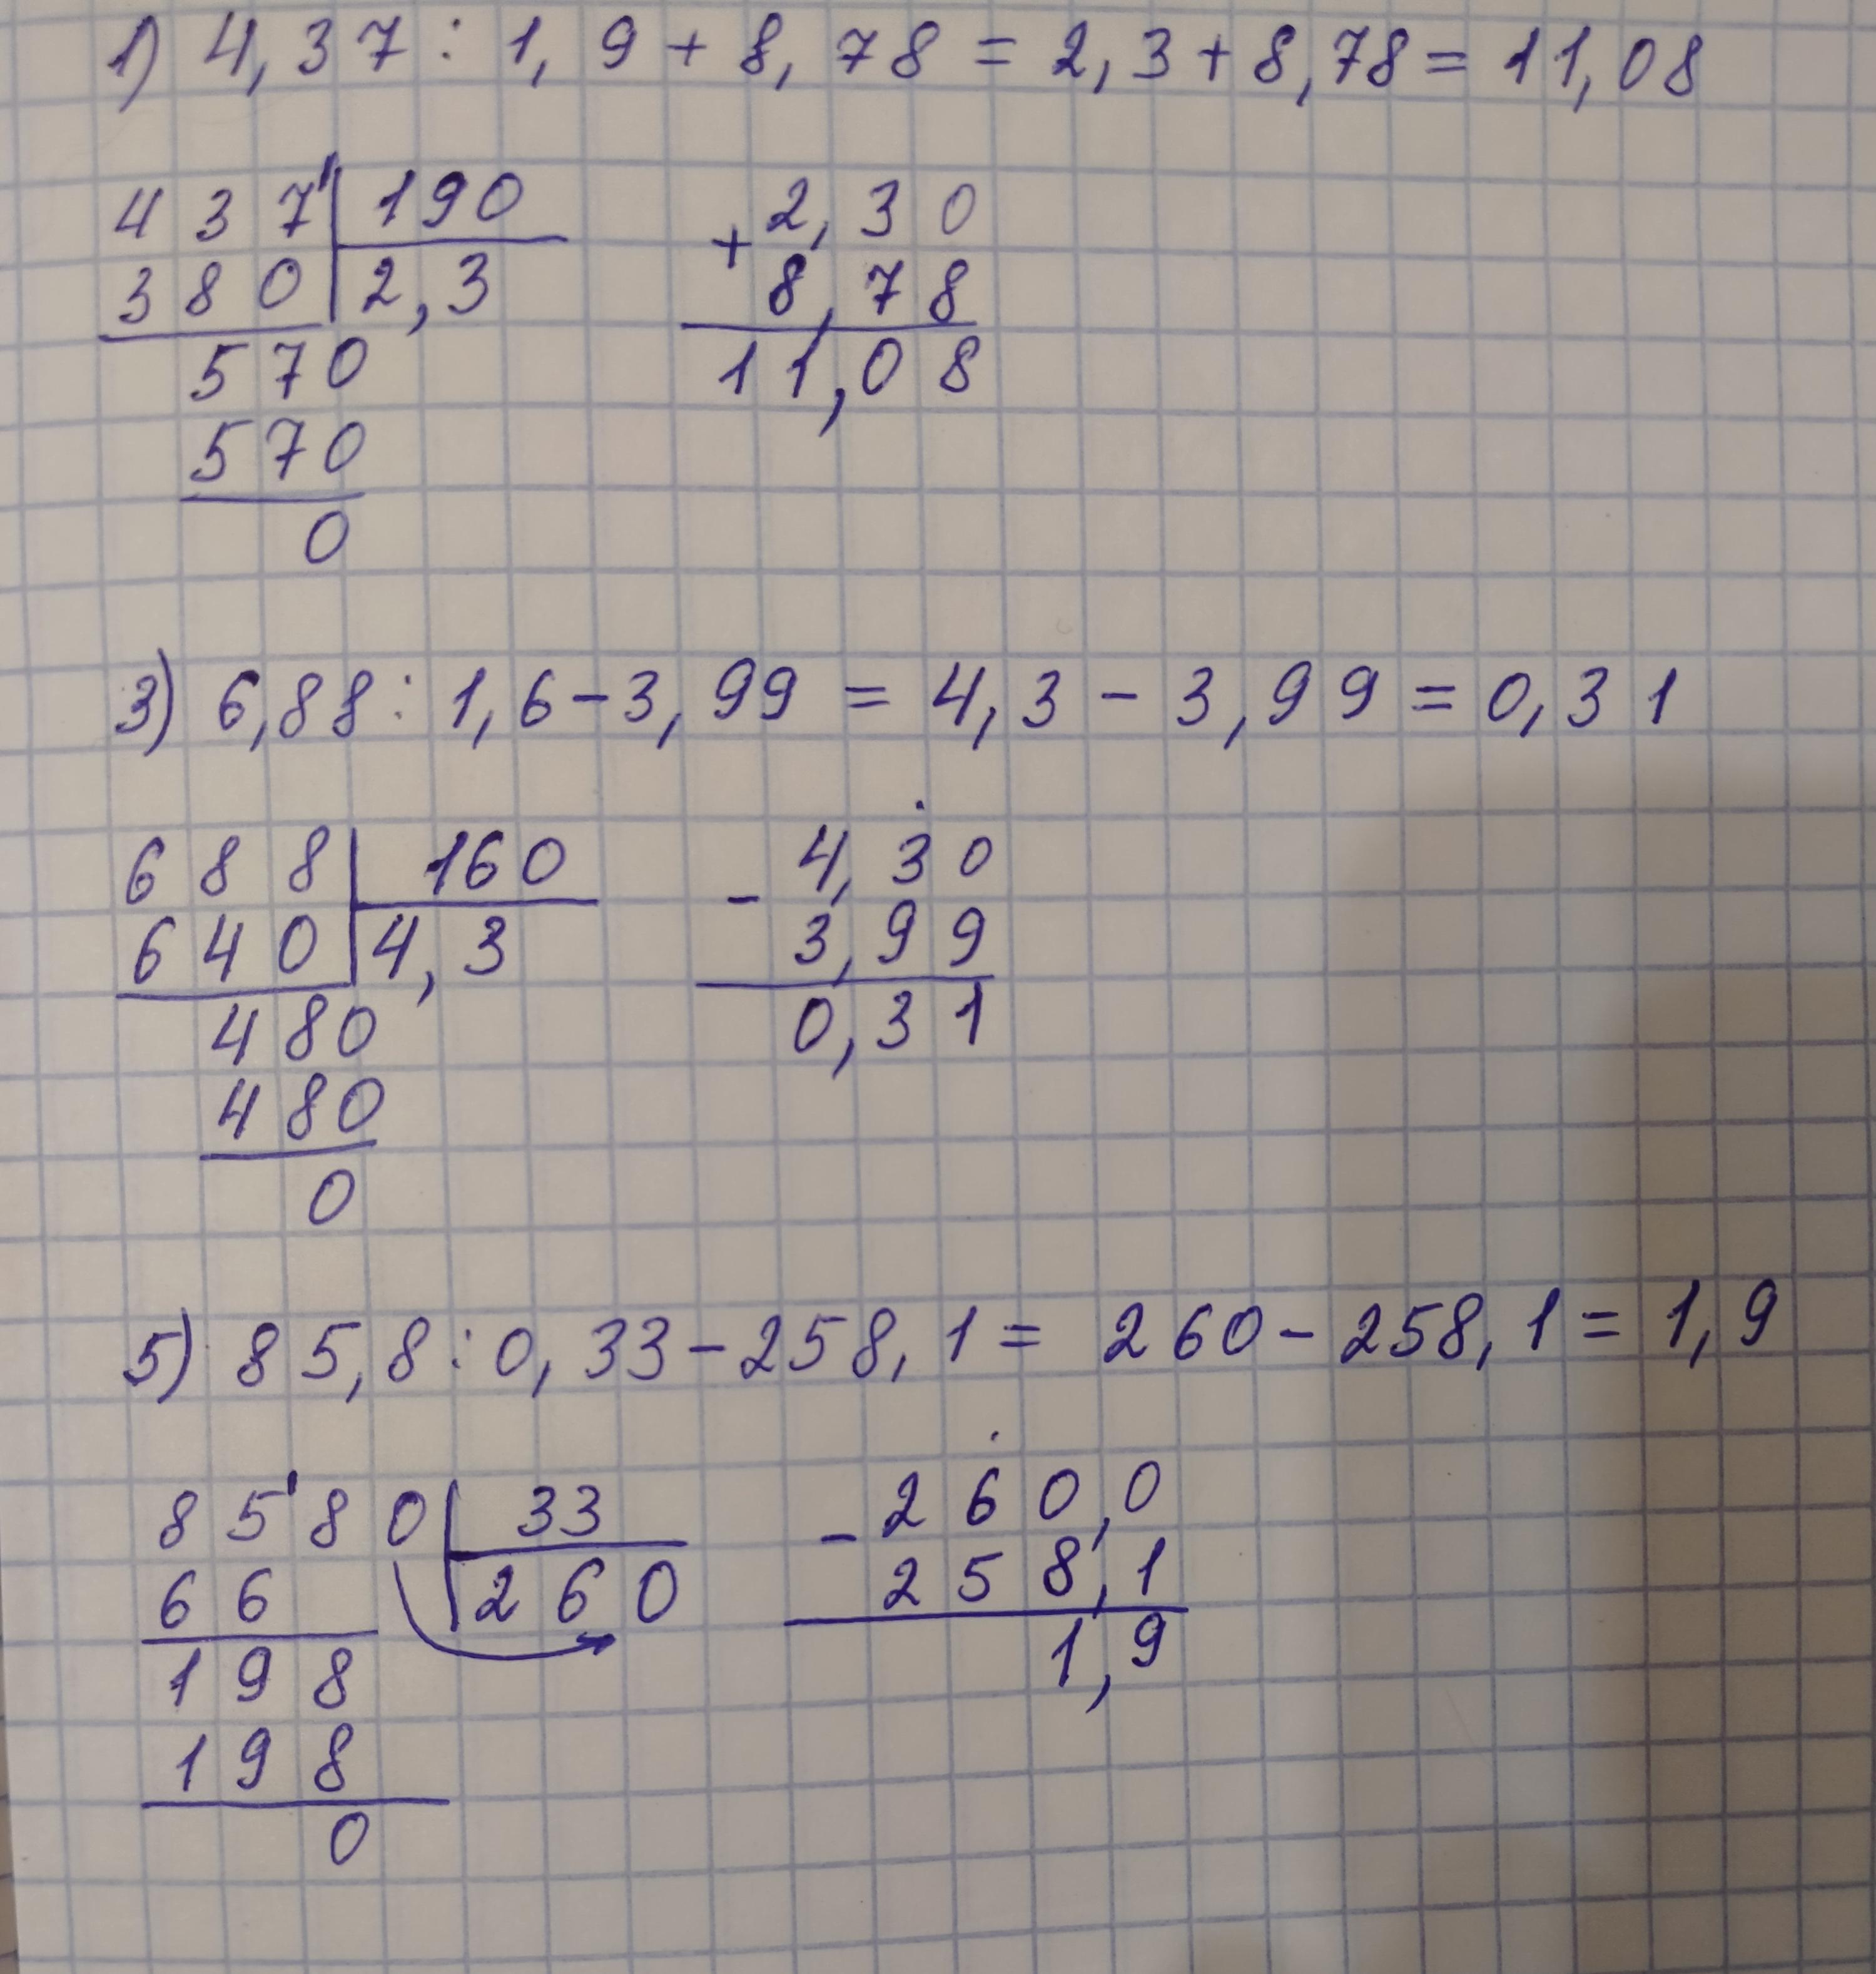 1) 4,37 : 1,9 + 8,78 = 2,3 + 8,78 = 11,08
437' 190 + 2,30
380 2,3 8,78
570 11,08
570
0
3) 6,88 : 1,6 - 3,99 = 4,3 - 3,99 = 0,31
688 160 - 4,30
640 4,3 3,99
480 0,31
480
0
5) 85,8 : 0,33 - 258,1 = 260 - 258,1 = 1,9
85'80 33 - 260,0
66 260 258,1
198 1,9
198
0